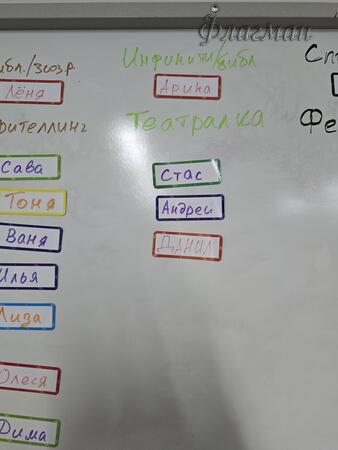 Флагман
ибл./зоозр.
Лёня
рителлинг
Сава
Тоня
Ваня
Илья
Лиза
Олеся
Дима
Инфинити/библ
Арина
Театралка
Стас
Андрей
Данил
Сп
Фе